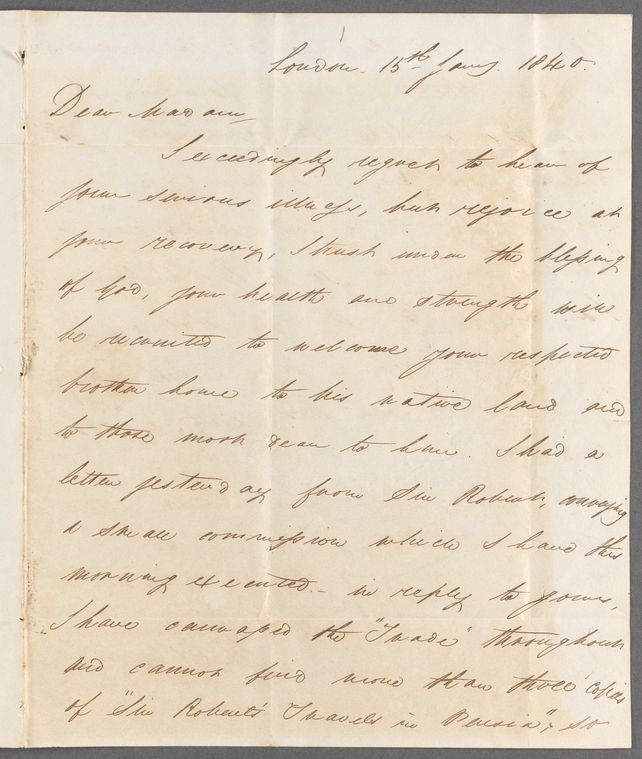 London. 15th Jany. 1840.
Dear Madam,
I exceedingly regret to hear of
your serious illness, but rejoice at
your recovery, I trust under the blessing
of God, your health and strength will
be recruited to welcome your respected
brother home to his native land and
to those most dear to him. I had a
letter yesterday from Sir Robert, conveying
a small commission which I have this
morning executed. - in reply to yours,
I have canvassed the "Trade" throughout
and cannot find more than three copies
of "Sir Robert's Travels in Persia", so